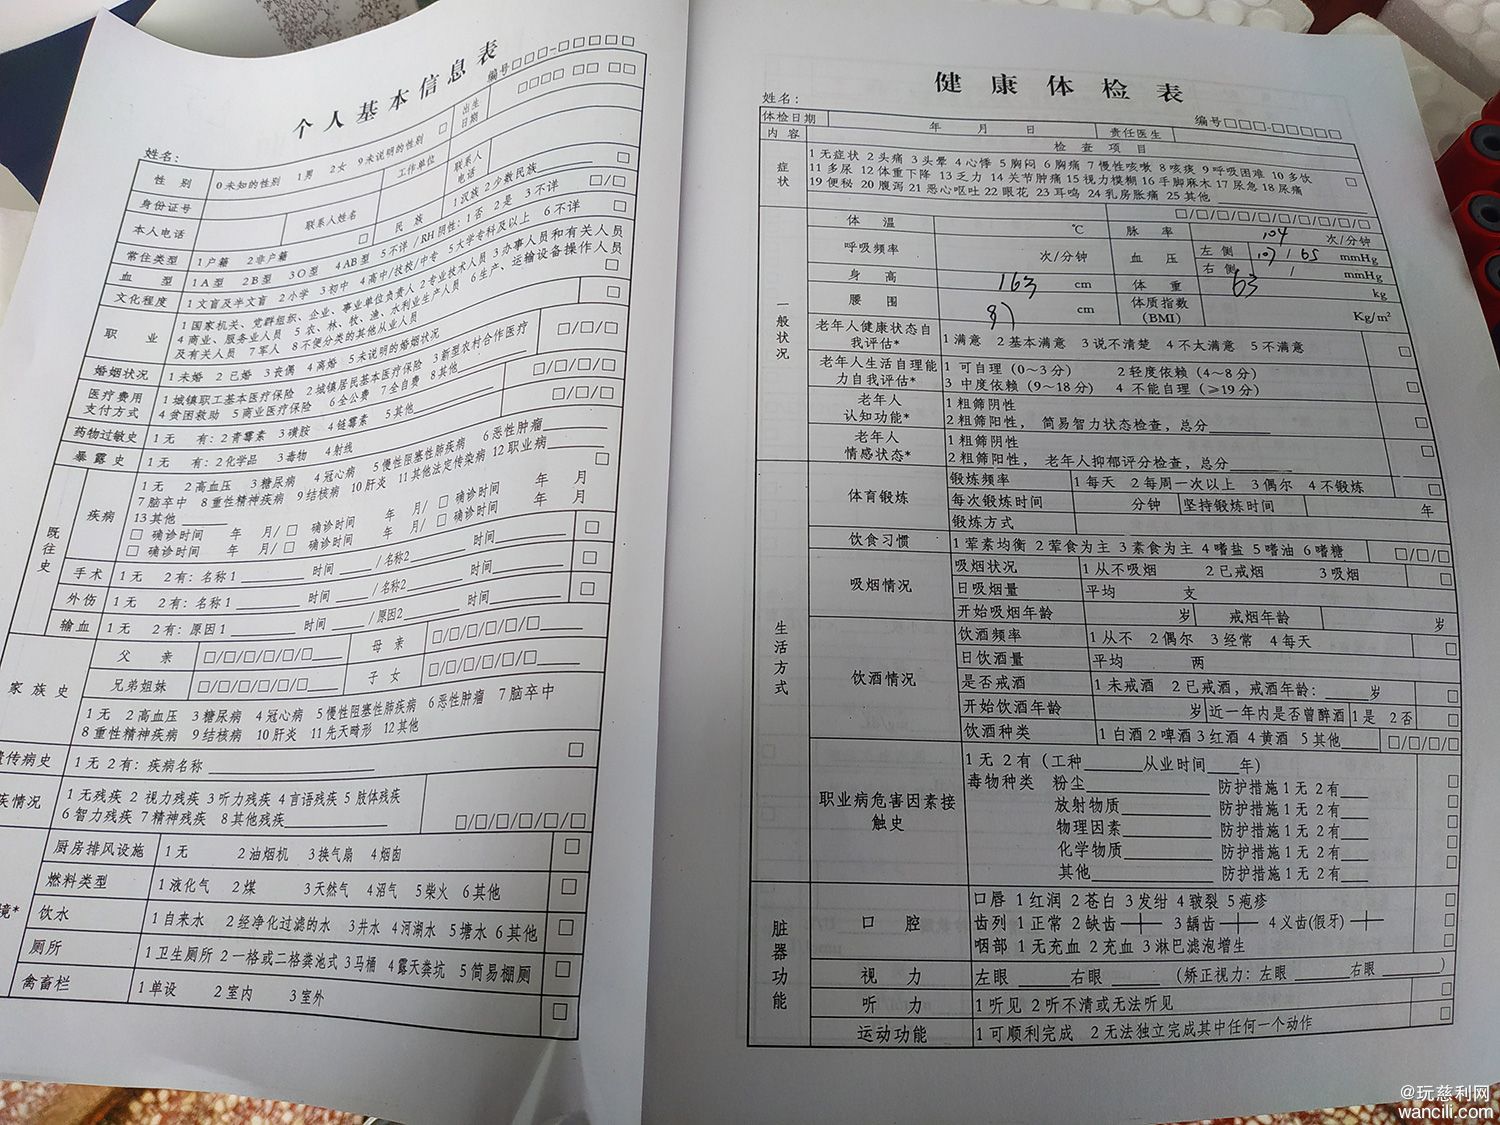 个人基本信息表
姓名: 编号□□□-□□□□□
性别 0未知的性别 1男 2女 9未说明的性别 □ 出生日期 □□□□ □□ □□
身份证号 工作单位
本人电话 联系人姓名 联系人电话
常住类型 1户籍 2非户籍 □ 民族 1汉族 2少数民族 □
血型 1A型 2B型 3O型 4AB型 5不详/RH阴性:1否 2是 3不详 □/□
文化程度 1文盲及半文盲 2小学 3初中 4高中/技校/中专 5大学专科及以上 6不详 □
职业 1国家机关、党群组织、企业、事业单位负责人 2专业技术人员 3办事人员和有关人员
4商业、服务业人员 5农、林、牧、渔、水利业生产人员 6生产、运输设备操作人员
及有关人员 7军人 8不便分类的其他从业人员 □
婚姻状况 1未婚 2已婚 3丧偶 4离婚 5未说明的婚姻状况 □
医疗费用支付方式 1城镇职工基本医疗保险 2城镇居民基本医疗保险 3新型农村合作医疗
4贫困救助 5商业医疗保险 6全公费 7全自费 8其他 □/□/□
药物过敏史 1无 有:2青霉素 3磺胺 4链霉素 5其他 □/□/□/□
暴露史 1无 有:2化学品 3毒物 4射线 □/□/□
既往史 疾病 1无 2高血压 3糖尿病 4冠心病 5慢性阻塞性肺疾病 6恶性肿瘤
7脑卒中 8重性精神疾病 9结核病 10肝炎 11其他法定传染病 12职业病
13其他 □
□ 确诊时间 年 月/□ 确诊时间 年 月/□ 确诊时间 年 月
□ 确诊时间 年 月/□ 确诊时间 年 月/□ 确诊时间 年 月
手术 1无 2有:名称1 时间 /名称2 时间 □
外伤 1无 2有:名称1 时间 /名称2 时间 □
输血 1无 2有:原因1 时间 /原因2 时间 □
家族史 父亲 □/□/□/□/□/□ 母亲 □/□/□/□/□/□
兄弟姐妹 □/□/□/□/□/□ 子女 □/□/□/□/□/□
1无 2高血压 3糖尿病 4冠心病 5慢性阻塞性肺疾病 6恶性肿瘤 7脑卒中
8重性精神疾病 9结核病 10肝炎 11先天畸形 12其他
遗传病史 1无 2有:疾病名称 □
疾情况 1无残疾 2视力残疾 3听力残疾 4言语残疾 5肢体残疾
6智力残疾 7精神残疾 8其他残疾 □/□/□/□/□/□
境* 厨房排风设施 1无 2油烟机 3换气扇 4烟囱 □
燃料类型 1液化气 2煤 3天然气 4沼气 5柴火 6其他 □
饮水 1自来水 2经净化过滤的水 3井水 4河湖水 5塘水 6其他 □
厕所 1卫生厕所 2一格或二格粪池式 3马桶 4露天粪坑 5简易棚厕 □
禽畜栏 1单设 2室内 3室外 □
健康体检表
姓名: 编号□□□-□□□□□
体检日期 年 月 日 责任医生
内容 检查项目
症状 1无症状 2头痛 3头晕 4心悸 5胸闷 6胸痛 7慢性咳嗽 8咳痰 9呼吸困难 10多饮
11多尿 12体重下降 13乏力 14关节肿痛 15视力模糊 16手脚麻木 17尿急 18尿痛
19便秘 20腹泻 21恶心呕吐 22眼花 23耳鸣 24乳房胀痛 25其他 □
□/□/□/□/□/□/□/□/□/□
一般状况 体温 ℃ 脉率 104 次/分钟
呼吸频率 次/分钟 血压 左侧 107/65 mmHg
右侧 / mmHg
身高 163 cm 体重 63 kg
腰围 87 cm 体质指数(BMI) Kg/m²
老年人健康状态自我评估* 1满意 2基本满意 3说不清楚 4不太满意 5不满意 □
老年人生活自理能力自我评估* 1可自理(0~3分) 2轻度依赖(4~8分)
3中度依赖(9~18分) 4不能自理(≥19分) □
老年人认知功能* 1粗筛阴性
2粗筛阳性, 简易智力状态检查,总分 □
老年人情感状态* 1粗筛阴性
2粗筛阳性, 老年人抑郁评分检查,总分 □
生活方式 体育锻炼 锻炼频率 1每天 2每周一次以上 3偶尔 4不锻炼 □
每次锻炼时间 分钟 坚持锻炼时间 年
锻炼方式
饮食习惯 1荤素均衡 2荤食为主 3素食为主 4嗜盐 5嗜油 6嗜糖 □/□/□
吸烟情况 吸烟状况 1从不吸烟 2已戒烟 3吸烟 □
日吸烟量 平均 支
开始吸烟年龄 岁 戒烟年龄 岁
饮酒情况 饮酒频率 1从不 2偶尔 3经常 4每天 □
日饮酒量 平均 两
是否戒酒 1未戒酒 2已戒酒,戒酒年龄: 岁 □
开始饮酒年龄 岁 近一年内是否曾醉酒 1是 2否 □
饮酒种类 1白酒 2啤酒 3红酒 4黄酒 5其他 □/□/□/□
职业病危害因素接触史 1无 2有(工种 从业时间 年) □
毒物种类 粉尘 防护措施1无 2有 □
放射物质 防护措施1无 2有 □
物理因素 防护措施1无 2有 □
化学物质 防护措施1无 2有 □
其他 防护措施1无 2有 □
脏器功能 口腔 口唇 1红润 2苍白 3发绀 4皲裂 5疱疹 □
齿列 1正常 2缺齿 3龋齿 4义齿(假牙) □
咽部 1无充血 2充血 3淋巴滤泡增生 □
视力 左眼 右眼 (矫正视力:左眼 右眼 )
听力 1听见 2听不清或无法听见 □
运动功能 1可顺利完成 2无法独立完成其中任何一个动作 □
@玩慈利网
wancili.com